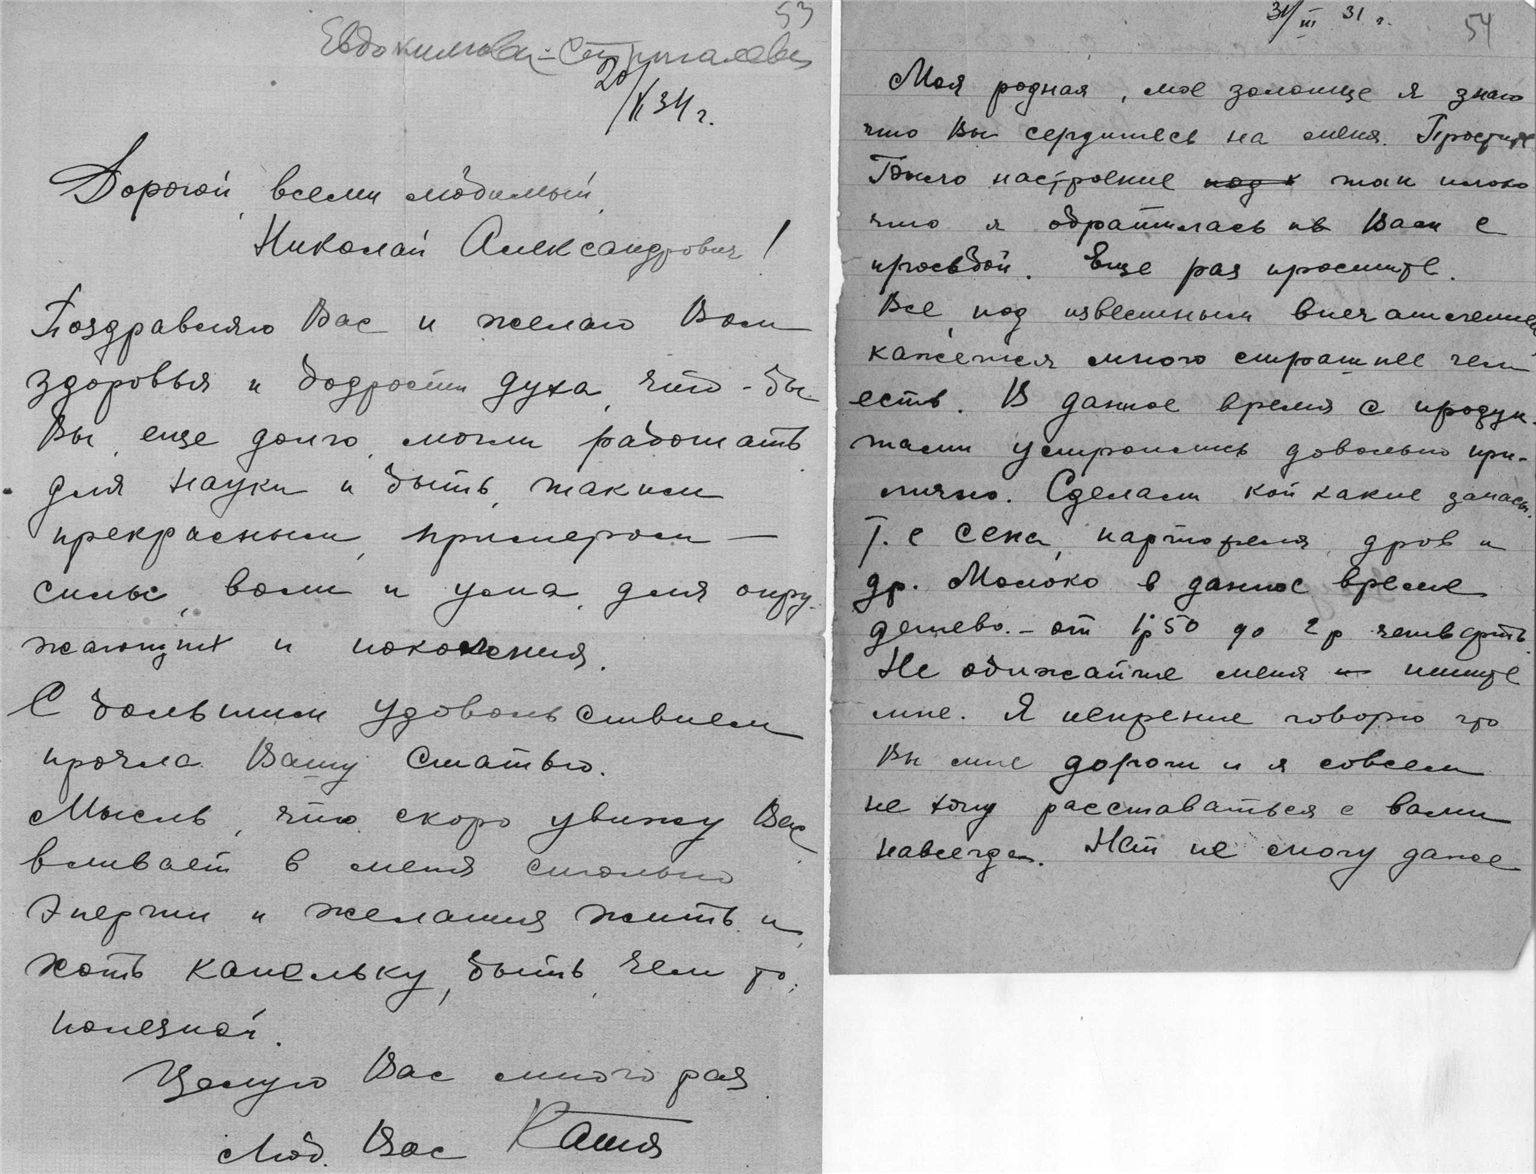 53
Евдокимова-Стригалева
20/X 34 г.
Дорогой, всеми любимый,
Николай Александрович!
Поздравляю Вас и желаю Вам
здоровья и бодрости духа, что-бы
Вы, еще долго, могли работать
для науки и быть, таким
прекрасным, примером —
силы, воли и ума, для окру-
жающих и поколения.
С большим удовольствием
прочла Вашу статью.
Мысль, что скоро увижу Вас
вливает в меня столько
энергии и желания жить и,
хоть капельку, быть, чем то,
полезной.
Целую Вас много раз
Люб. Вас Катя
31/III 31 г.
54
Моя родная, мое золотце я знаю
что Вы сердитесь на меня. Простите
Было настроение так плохо
что я обратилась к Вам с
просьбой. Еще раз простите.
Все, под известным впечатлением
кажется много страшнее чем
есть. В данное время с продук-
тами устроились довольно при-
лично. Сделали кой какие запасы.
Т. е сена, картофеля, дров и
др. Молоко в данное время
дешево. – от 1р 50 до 2 р четверть.
Не обижайте меня и пишите
мне. Я искренне говорю что
Вы мне дороги и я совсем
не хочу расставаться с вами
навсегда. Нет не могу даже